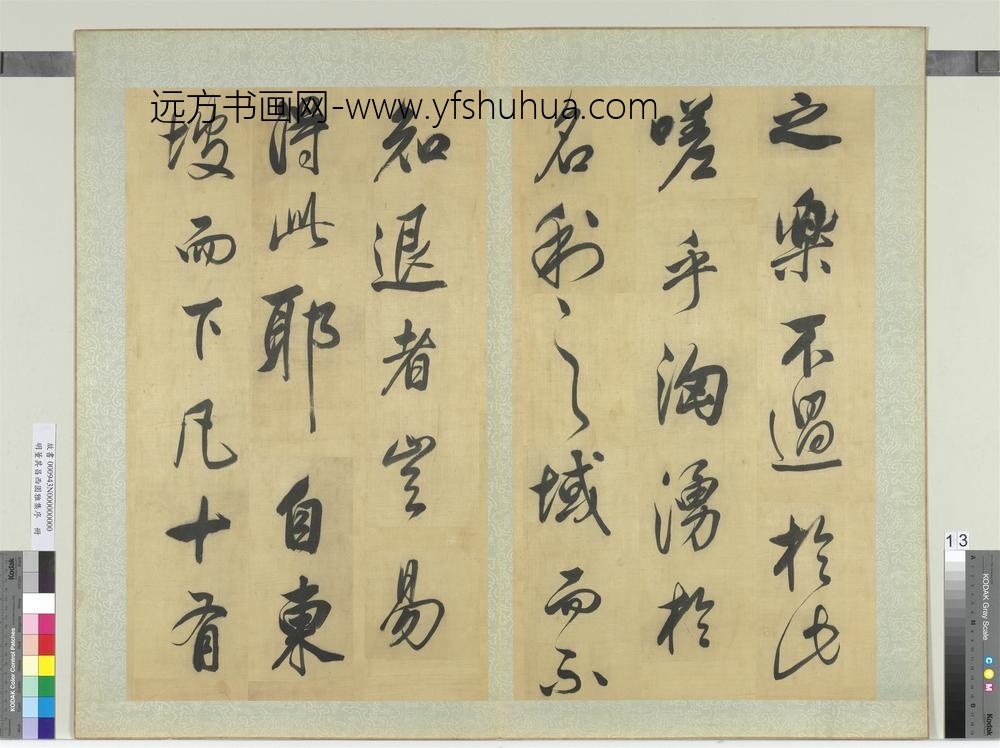 远方书画网-www.yfshuhua.com
之樂不過於此
嗟乎洶湧於
名利之域而不
知退者豈易
得此耶自東
坡而下凡十有
故書 000943N000000000
明董其昌西園雅集序 冊
13
KODAK Gray Scale
C
Y
M
Kodak
A
M
B
Kodak
KODAK Color Control Patches